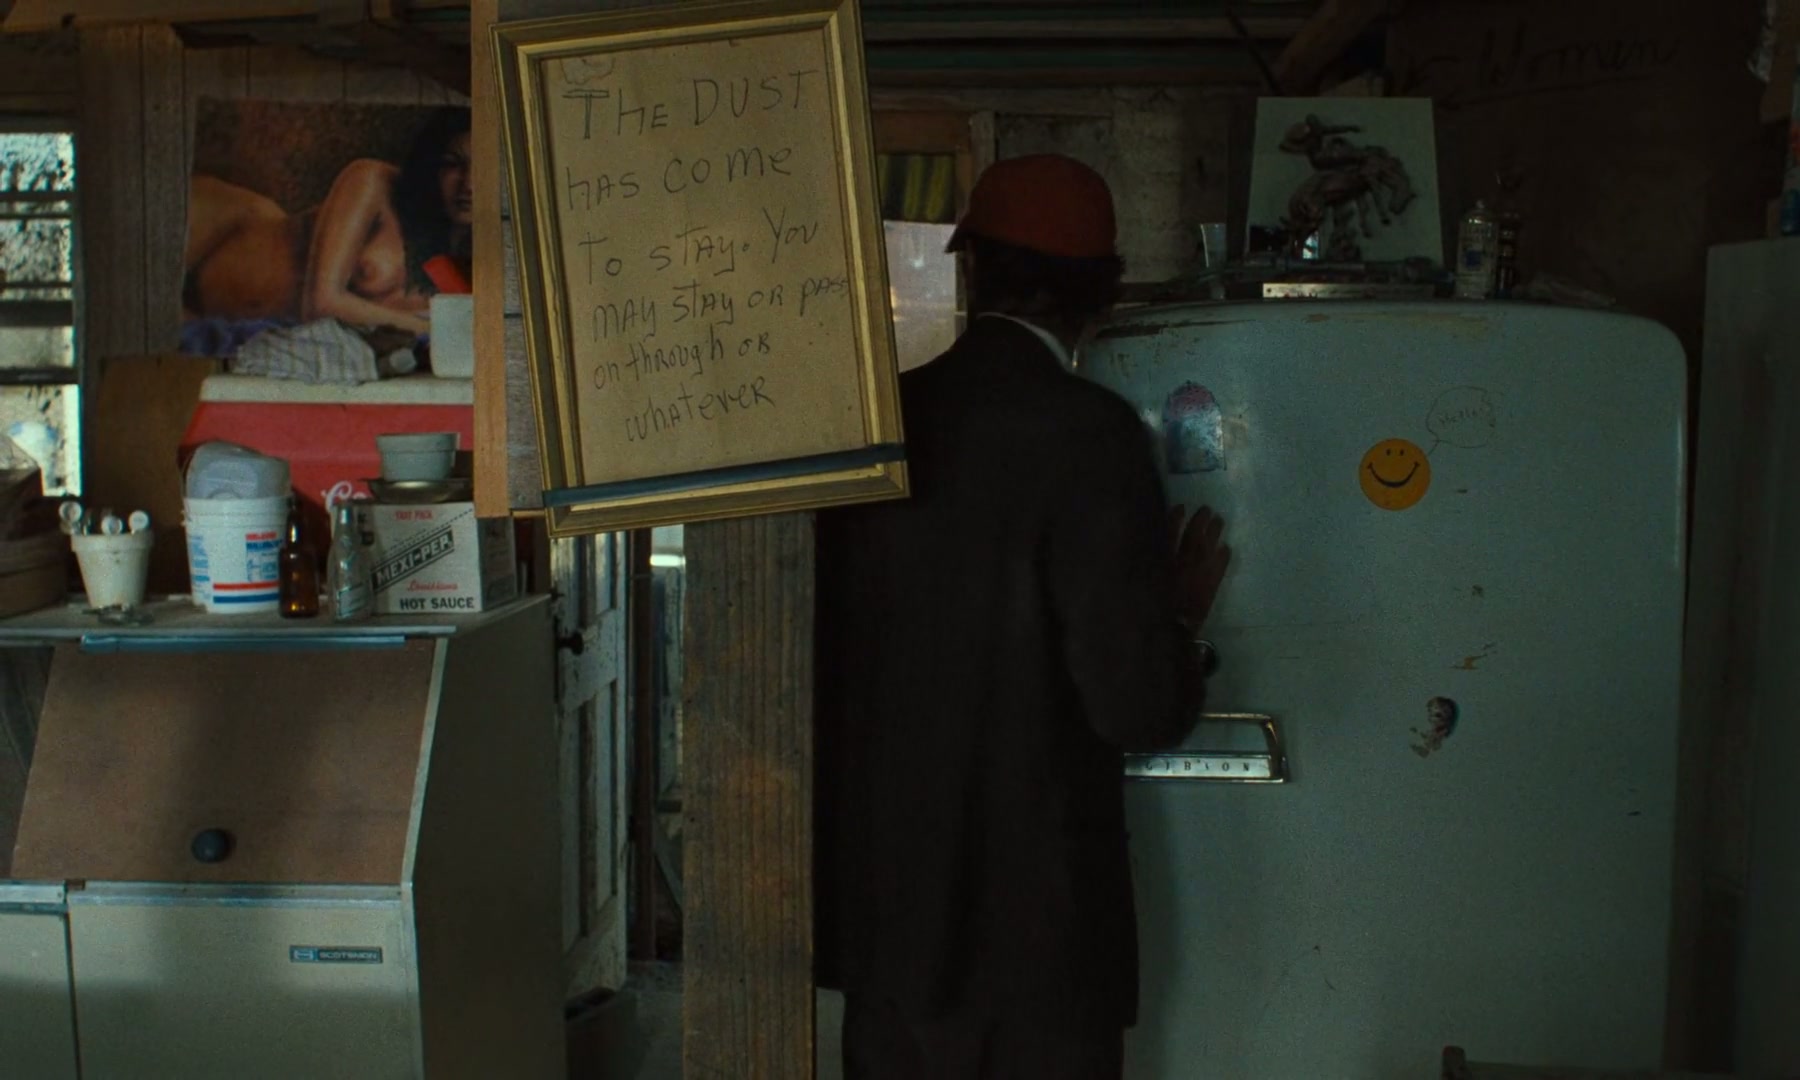 THE DUST
HAS COME
TO STAY. YOU
MAY STAY OR PASS
ON THROUGH OR
WHATEVER
Women
Co
FAST PACK
MEXI-PEP
Louisiana
HOT SAUCE
GIBSON
SCOTSMAN